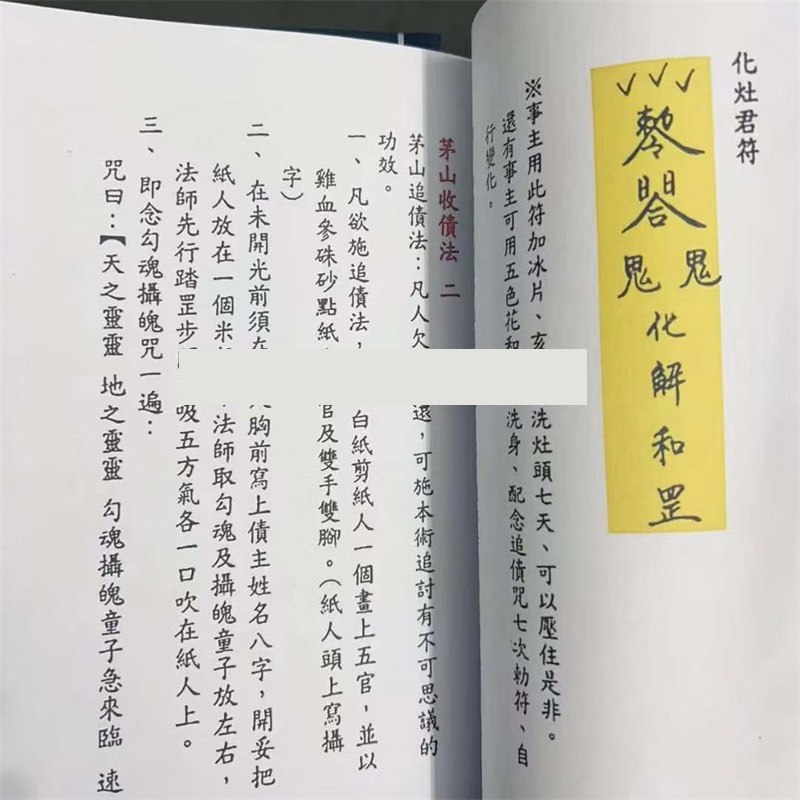 化灶君符
鬼 鬼
化解和罡
※事主用此符加冰片、洗灶頭七天、可以壓住是非。
還有事主可用五色花和洗身、配念追債咒七次勅符、自
行變化。
茅山收債法 二
茅山追債法：凡人欠還，可施本術追討有不可思議的
功效。
一、凡欲施追債法，白紙剪紙人一個畫上五官，並以
雞血參硃砂點紙官及雙手雙腳。（紙人頭上寫攝
字）
二、在未開光前須在胸前寫上債主姓名八字，開妥把
紙人放在一個米法師取勾魂及攝魄童子放左右，
法師先行踏罡步吸五方氣各一口吹在紙人上。
三、即念勾魂攝魄咒一遍：
咒曰：【天之靈靈 地之靈靈 勾魂攝魄童子急來臨 速